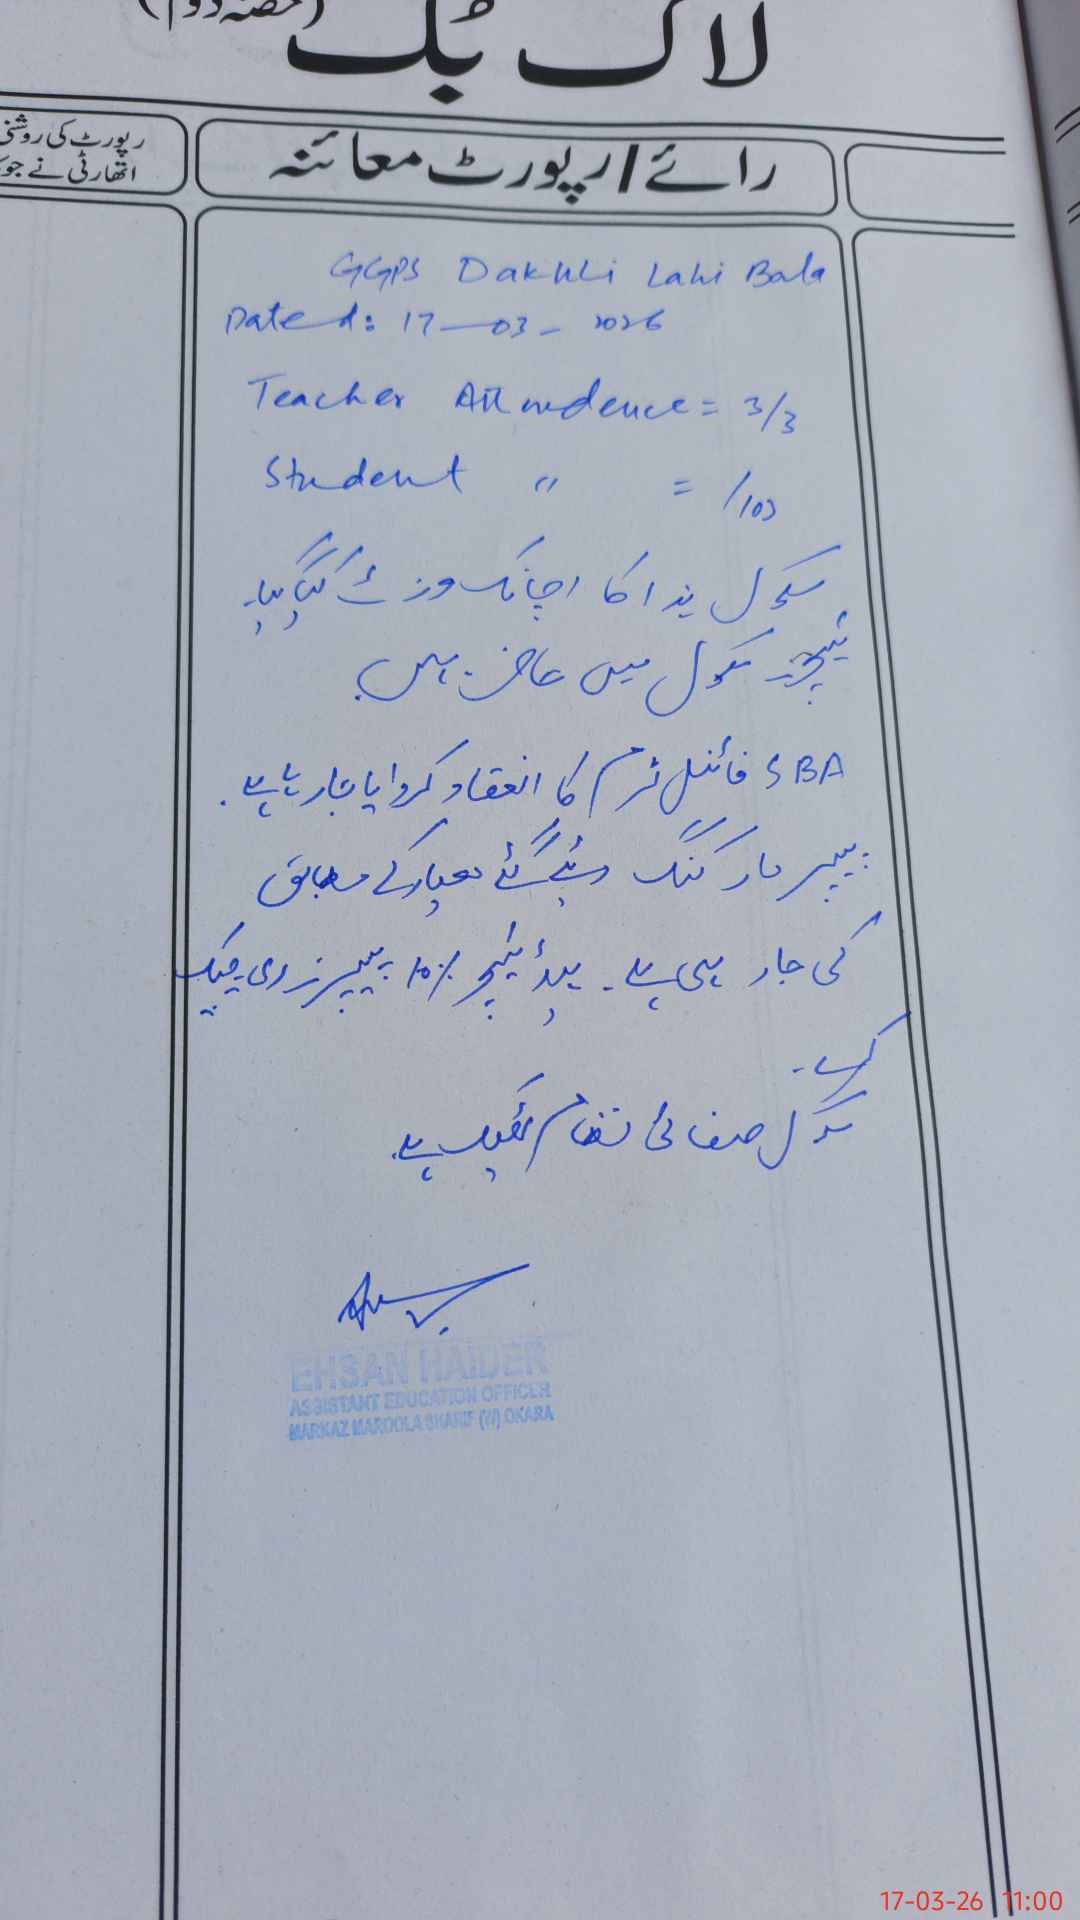 لاگ بک
(حصہ دوم)
رائے/رپورٹ معائنہ
رپورٹ کی روشنی
اتھارٹی نے جو
GGPS Dakhli Lahi Bala
Dated: 17-03-2026
Teacher Attendence = 3/3
Student " = /103
سکول ہذا کا اچانک وزٹ کیا گیا۔
ٹیچرز سکول میں حاضر ہیں۔
SBA فائنل ٹرم کا انعقاد کروایا جا رہا ہے۔
پیپر مارکنگ دیئے گئے معیار کے مطابق
کی جا رہی ہے۔ ہیڈ ٹیچر 10% پیپرز ری چیک
کرے۔
سکول صفائی نظام ٹھیک ہے۔
EHSAN HAIDER
ASSISTANT EDUCATION OFFICER
MARKAZ MAROOLA SHARIF (W) OKARA
17-03-26 11:00